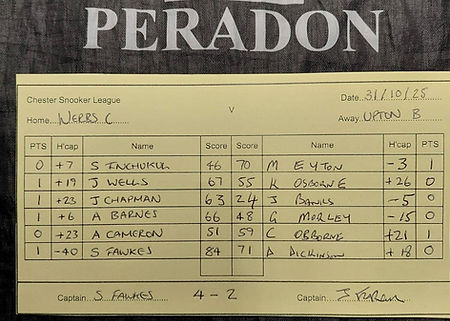 PERADON
Chester Snooker League Date 31/10/25
Home WERBS C V Away UPTON B
PTS H'cap Name Score Score Name H'cap PTS
0 +7 S 46 70 M EYTON -3 1
1 +19 J WELLS 67 55 K OSBORNE +26 0
1 +23 J CHAPMAN 63 24 J -5 0
1 +6 A BARNES 66 48 G MORLEY -15 0
0 +23 A CAMERON 51 59 C OBBORNE +21 1
1 -40 S FAWKES 84 71 A DICKINSON +18 0
Captain S FAWKES 4-2 Captain J